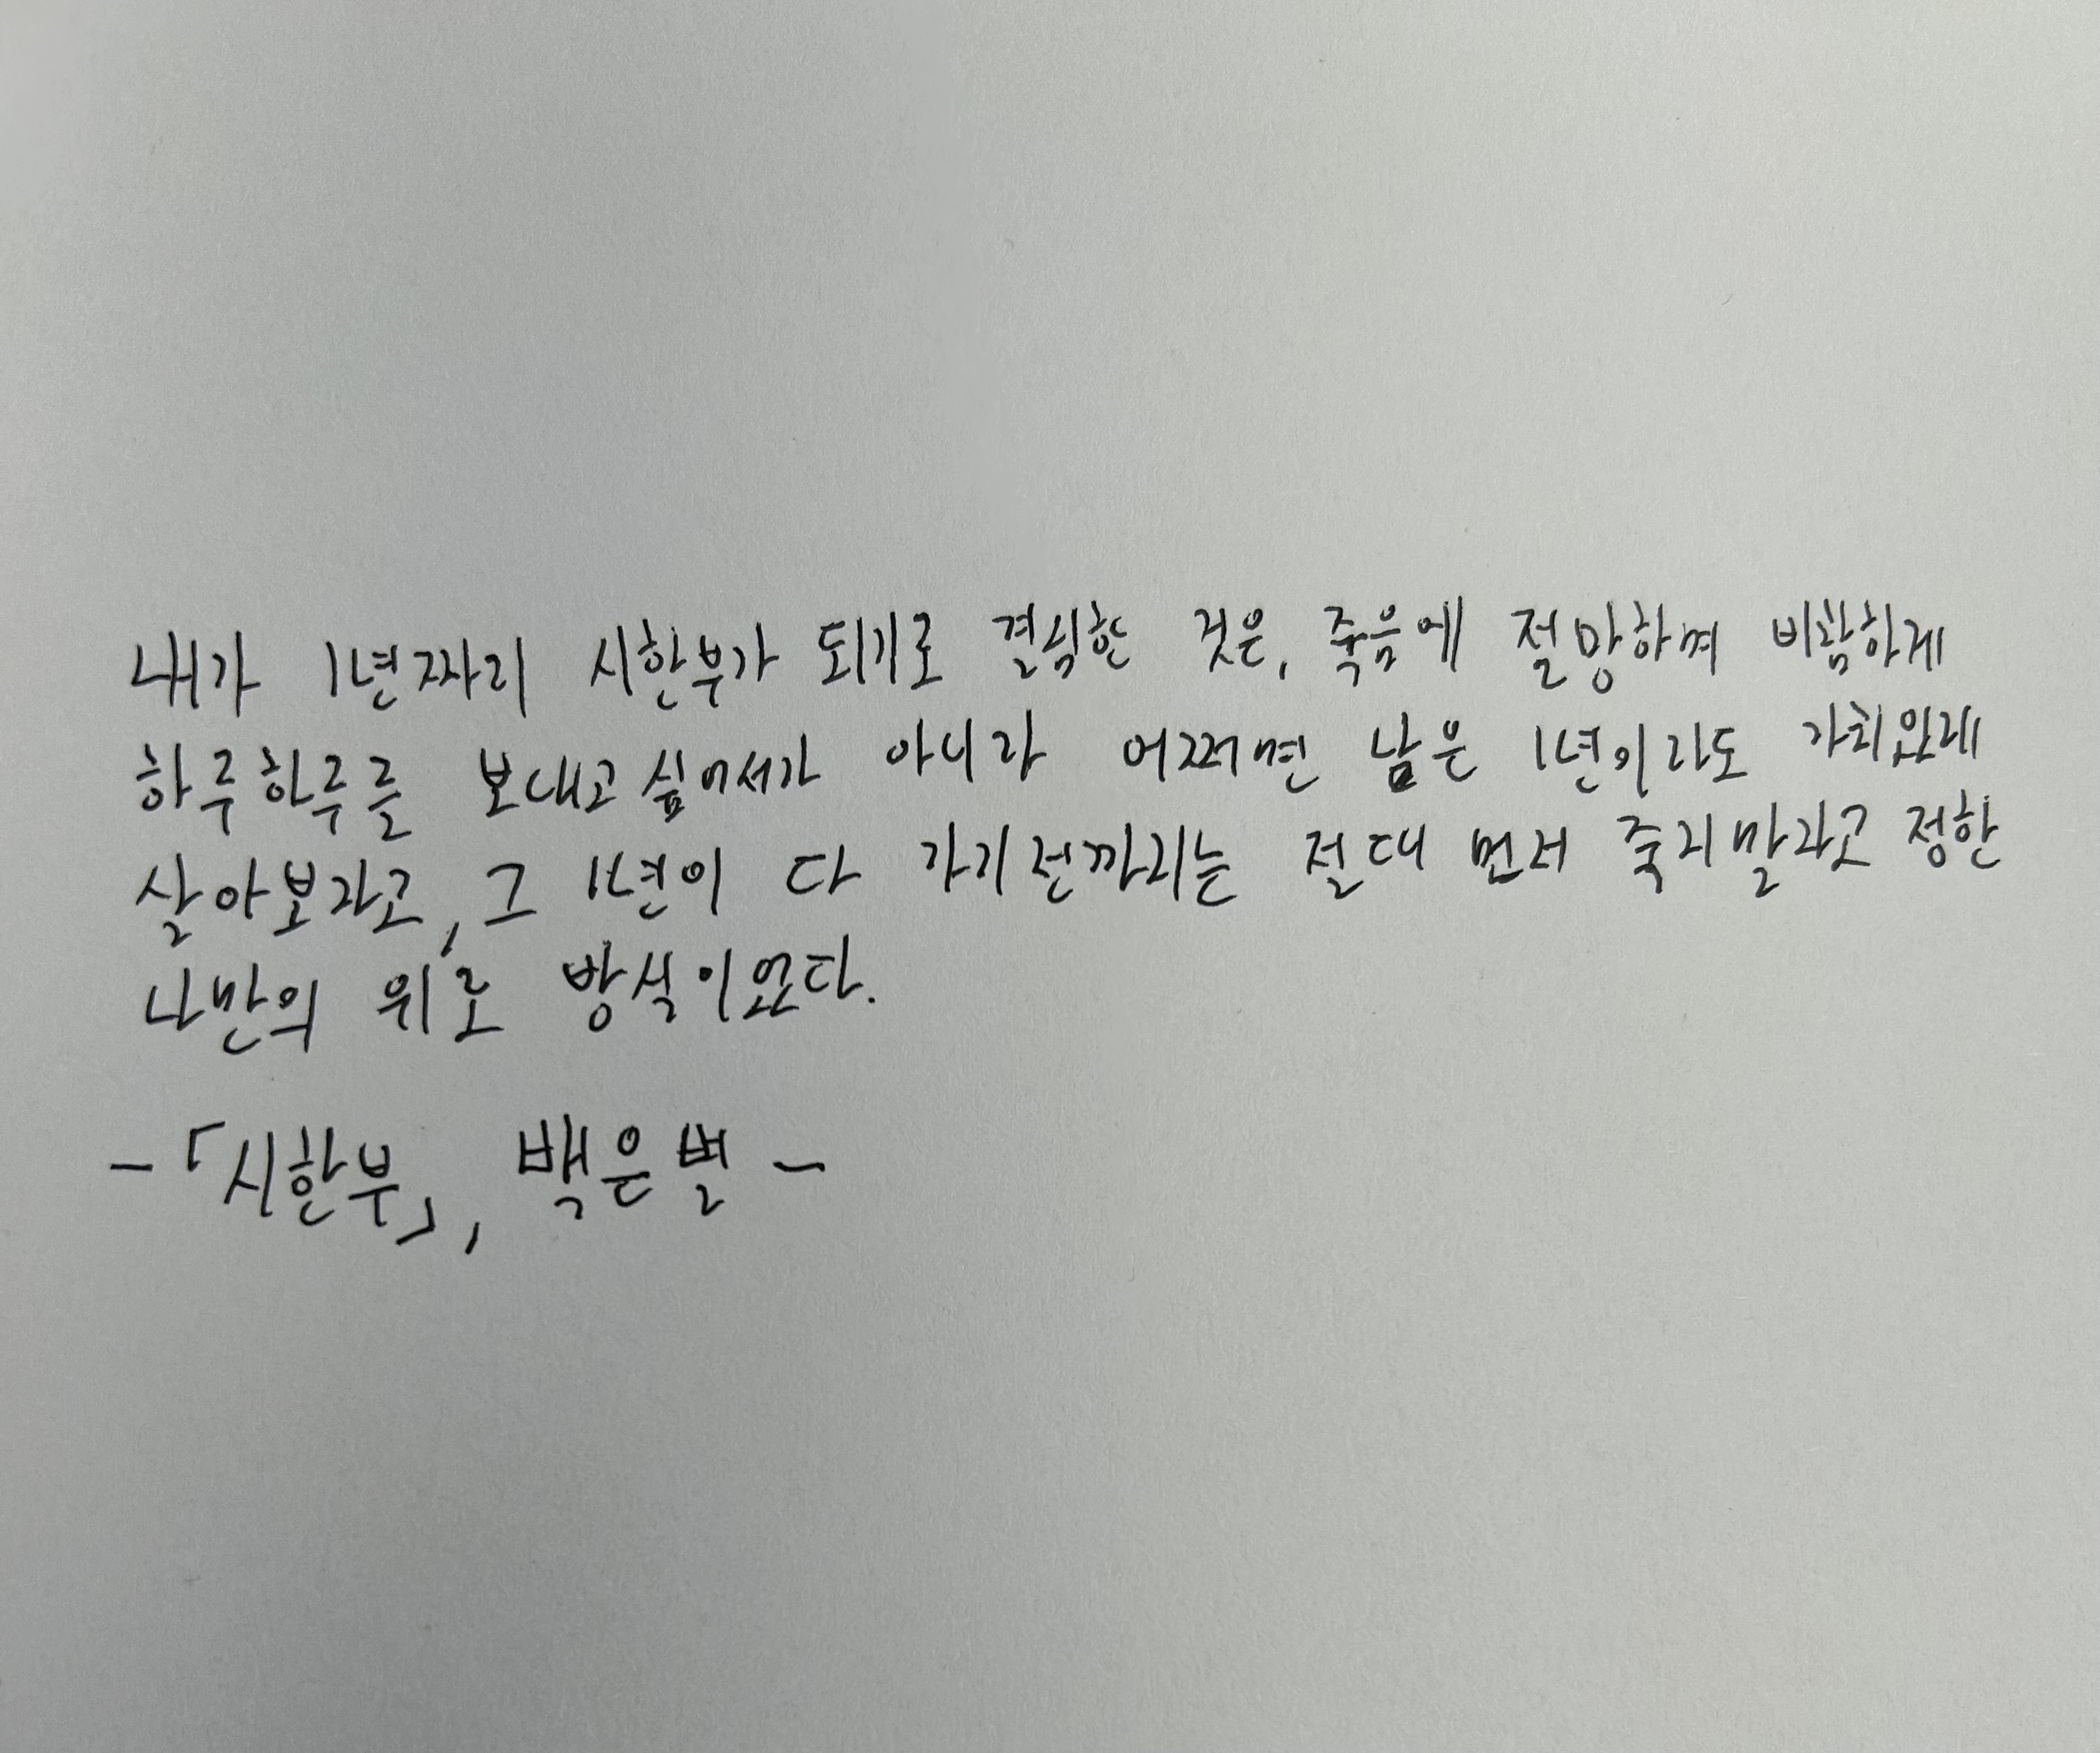 내가 1년짜리 시한부가 되기로 결심한 것은, 죽음에 절망하며 비참하게
하루하루를 보내고 싶어서가 아니라 어쩌면 남은 1년이라도 가치있게
살아보라고, 그 1년이 다 가기 전까지는 절대 먼저 죽지말라고 정한
나만의 위로 방식이었다.
-「시한부」, 백은별 -